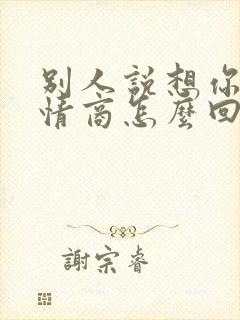 別人說想你
情商怎麼回
謝宗睿